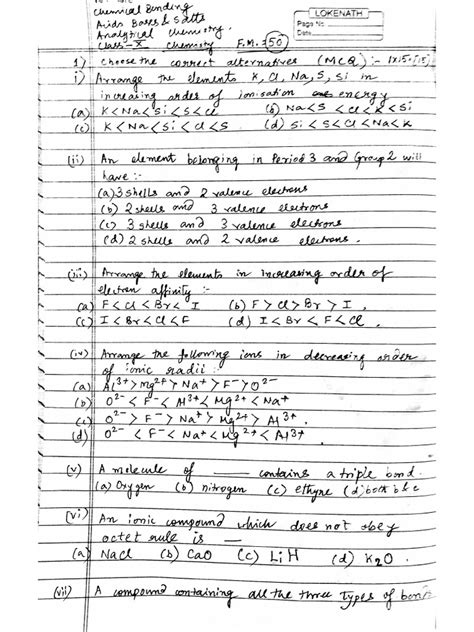 Chemical Bonding
LOKENATH
Page No.
Date
Acids Bases & Salts
Analytical chemistry.
Class-X Chemistry F.M.:50
1) Choose the correct alternatives (MCQ) :- 1x15=[15]
i) Arrange the elements K, Cl, Na, S, Si in
increasing order of ionisation energy
(a) K<Na<Si<S<Cl (b) Na<S<Cl<K<Si
(c) K<Na<Si<Cl<S (d) Si<S<Cl<Na<K
(ii) An element belonging in Period 3 and Group 2 will
have :-
(a) 3 shells and 2 valence electrons
(b) 2 shells and 3 valence electrons
(c) 3 shells and 3 valence electrons
(d) 2 shells and 2 valence electrons.
(iii) Arrange the elements in increasing order of
electron affinity :-
(a) F<Cl<Br<I (b) F>Cl>Br>I.
(c) I<Br<Cl<F (d) I<Br<F<Cl.
(iv) Arrange the following ions in decreasing order
of ionic radii :-
(a) Al3+>Mg2+>Na+>F->O2-
(b) O2-<F-<Al3+<Mg2+<Na+
(c) O2->F->Na+>Mg2+>Al3+.
(d) O2-<F-<Na+<Mg2+<Al3+
(v) A molecule of ___ contains a triple bond.
(a) Oxygen (b) nitrogen (c) ethyne (d) both b & c
(vi) An ionic compound which does not obey
octet rule is ___
(a) NaCl (b) CaO (c) LiH (d) K2O.
(vii) A compound containing all the three types of bond